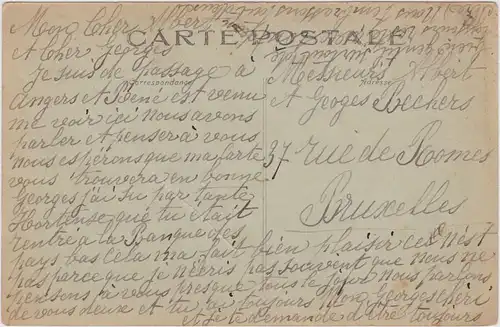 Mon Cher Albert
CARTE POSTALE
et Cher Georges
Je suis de passage à
Correspondance
Adresse
Angers et Béné est venu
me voir ici nous avons
parler et penser à vous
nous espérons que ma carte
vous trouvera en bonne
Georges j'ai su par tante
Hortense que tu était
rentré a la Banque des
pays bas cela ma fait bien plaisir ce n'est
pas parce que je n'écris pas souvent que nous ne
pensons à vous presque tous le jours nous parlons
de vous deux et tu sai toujours mon Georges chéri
et je te demande d'être toujours
Messieurs Albert
et Georges Bechers
37 rue de Rome
Bruxelles